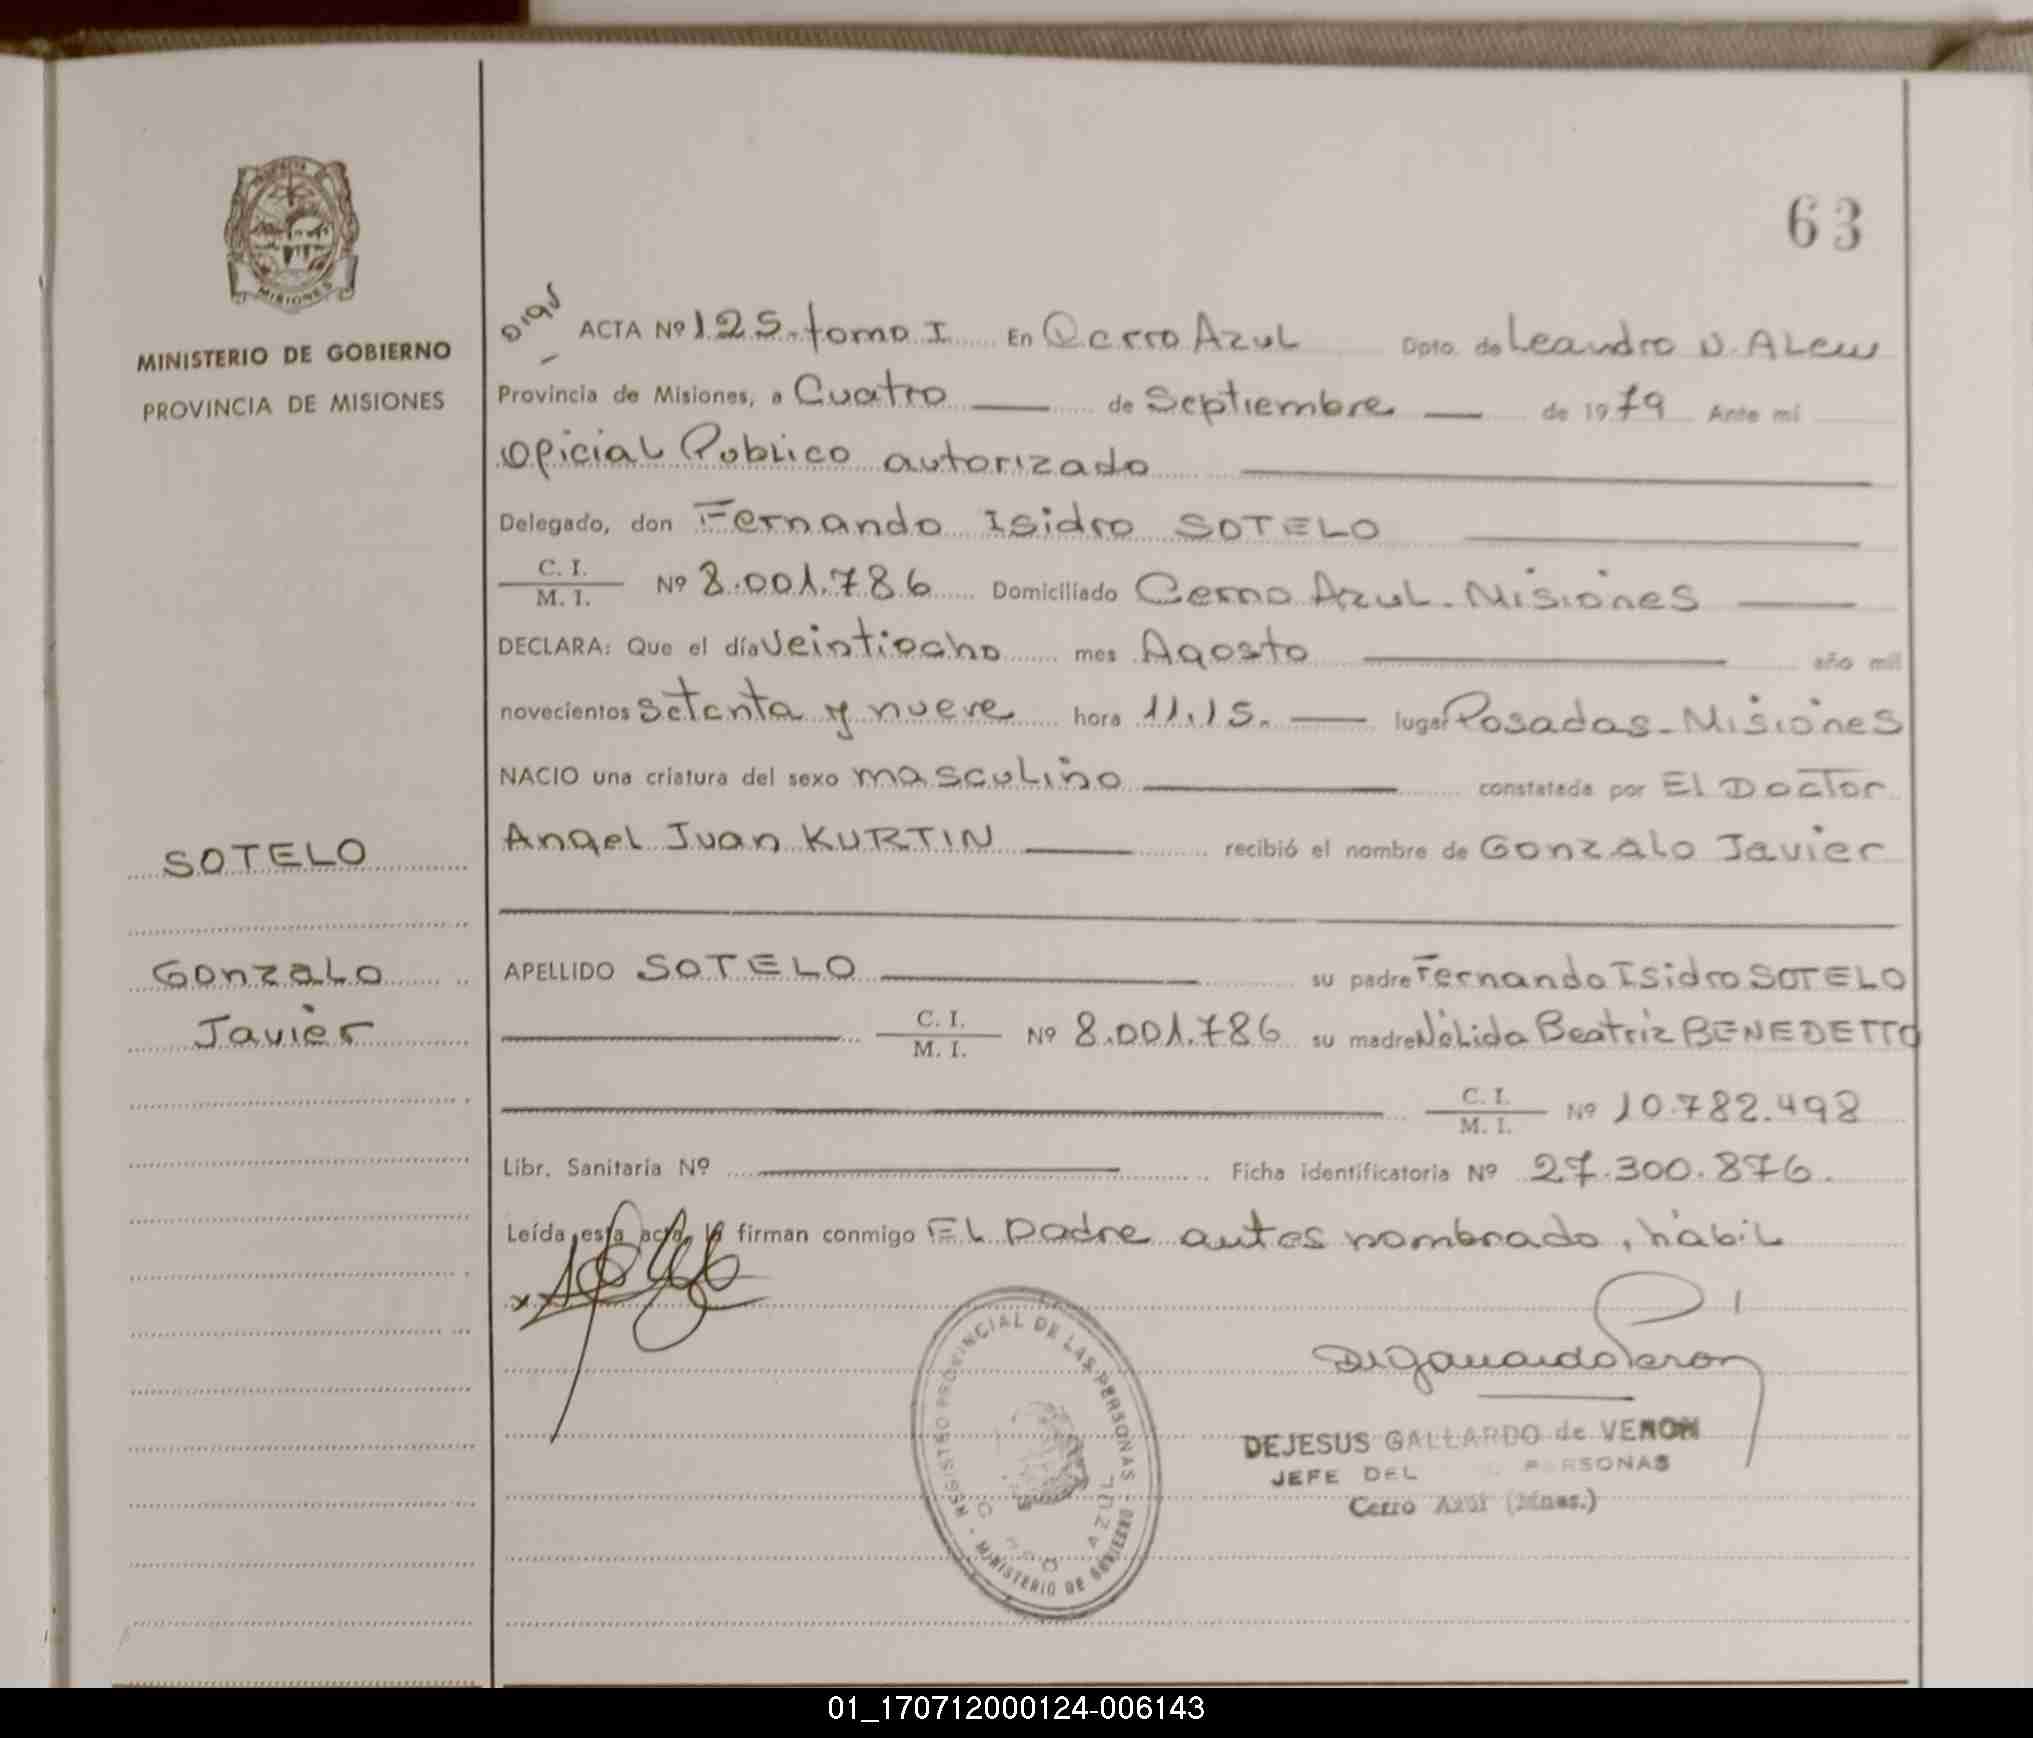 63
MISIONES
MINISTERIO DE GOBIERNO
PROVINCIA DE MISIONES
ACTA Nº 125. tomo I En Cerro Azul Dpto. de Leandro N. ALem
Provincia de Misiones, a Cuatro de Septiembre de 1979 Ante mí
Oficial Publico autorizado
Delegado, don Fernando Isidro SOTELO
C. I.
M. I. Nº 8.001.786 Domiciliado Cerro Azul - Misiones
DECLARA: Que el día Veintiocho mes Agosto año mil
novecientos setenta y nueve hora 11.15. lugar Posadas - Misiones
NACIO una criatura del sexo masculino constatada por El Doctor
Angel Juan KURTIN recibió el nombre de Gonzalo Javier
APELLIDO SOTELO su padre Fernando Isidro SOTELO
C. I.
M. I. Nº 8.001.786 su madre Nélida Beatriz BENEDETTO
C. I.
M. I. Nº 10.782.498
Libr. Sanitaria Nº Ficha identificatoria Nº 27.300.876.
Leída esta acta, la firman conmigo El padre antes nombrado, hábil
SOTELO
Gonzalo
Javier
REGISTRO PROVINCIAL DE LAS PERSONAS
MINISTERIO DE GOBIERNO
DEJESUS GALLARDO de VERON
JEFE DEL PERSONAS
Cerro Azul (Mnes.)
01_170712000124-006143